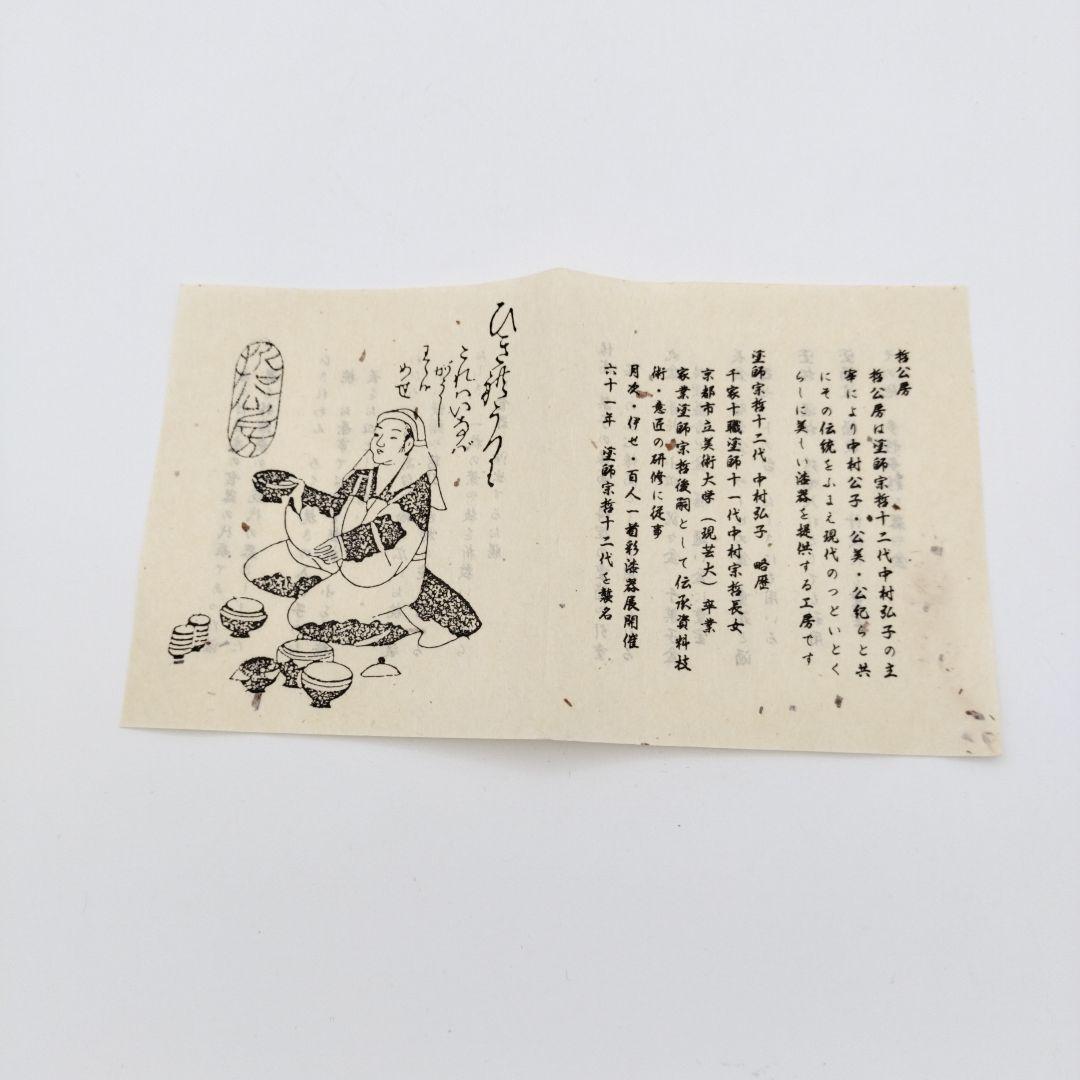 哲公房
哲公房は塗師宗哲十二代中村弘子の主
宰により中村公子・公美・公紀らと共
にその伝統をふまえ現代のつといとく
らしに美しい漆器を提供する工房です
塗師宗哲十二代 中村弘子 略歴
千家十職塗師十一代中村宗哲長女
京都市立美術大学(現芸大)卒業
家業塗師宗哲後嗣として伝承資料技
術・意匠の研修に従事
月次・伊セ・百人一首彩漆器展開催
六十一年 塗師宗哲十二代を襲名
ひさ
これハいかゞ
めせ
哲公房